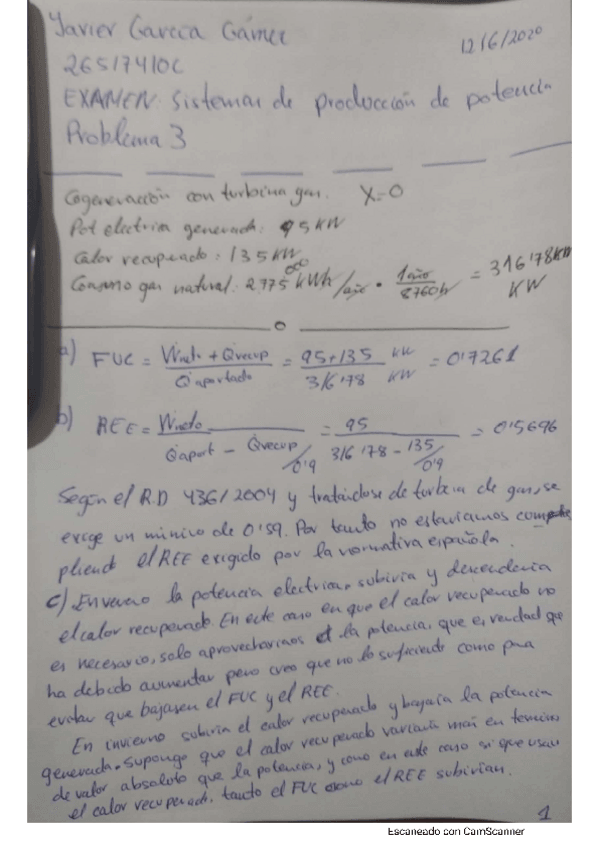 Javier García Gámez
12/6/2020
26517410C
EXAMEN: Sistemas de producción de potencia
Problema 3
Cogeneración con turbina gas. X=0
Pot electrica generada: 95 KW
Calor recuperado: 135 KW
Consumo gas natural: 2775000 KWh/año · 1 año/8760h = 316'78 KW
KW
a) FUC = Ẇneto + Q̇recup / Q̇aportado = 95+135 / 316'78 KW/KW = 0'7261
b) REE = Ẇneto / Q̇aport - Q̇recup/0'9 = 95 / 316'78 - 135/0'9 = 0'5696
Según el R.D 436/2004 y tratándose de turbina de gas, se
exige un mínimo de 0'59. Por tanto no estaríamos cumpliendo
el REE exigido por la normativa española.
c) En verano la potencia electrica subiria y descenderia
el calor recuperado. En este caso en que el calor recuperado no
es necesario, solo aprovechariamos la potencia, que es verdad que
ha debido aumentar pero creo que no lo suficiente como para
evitar que bajasen el FUC y el REE.
En invierno subiria el calor recuperado y bajaría la potencia
generada. Supongo que el calor recuperado variaria más en termino
de valor absoluto que la potencia, y como en este caso si que usan
el calor recuperado, tanto el FUC como el REE subirian.
1
Escaneado con CamScanner